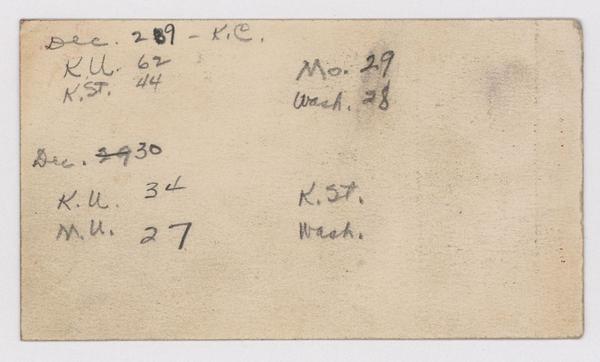 Dec. 29 - K.C.
K.U. 62
K.St. 44
Mo. 29
Wash. 28
Dec. 30
K.U. 34
M.U. 27
K.St.
Wash.